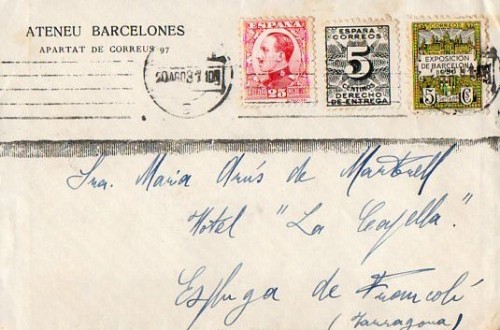 ATENEU BARCELONES
APARTAT DE CORREUS 97
20 AGO 31 10
ESPAÑA
25
ESPAÑA
CORREOS
5
CENTIMOS
DERECHO
DE ENTREGA
EXPOSICION
DE BARCELONA
1930
5 Cs
Sra. Maria Arús de Martorell
Hotel "La Capella".
Espluga de Francolí
(Tarragona)